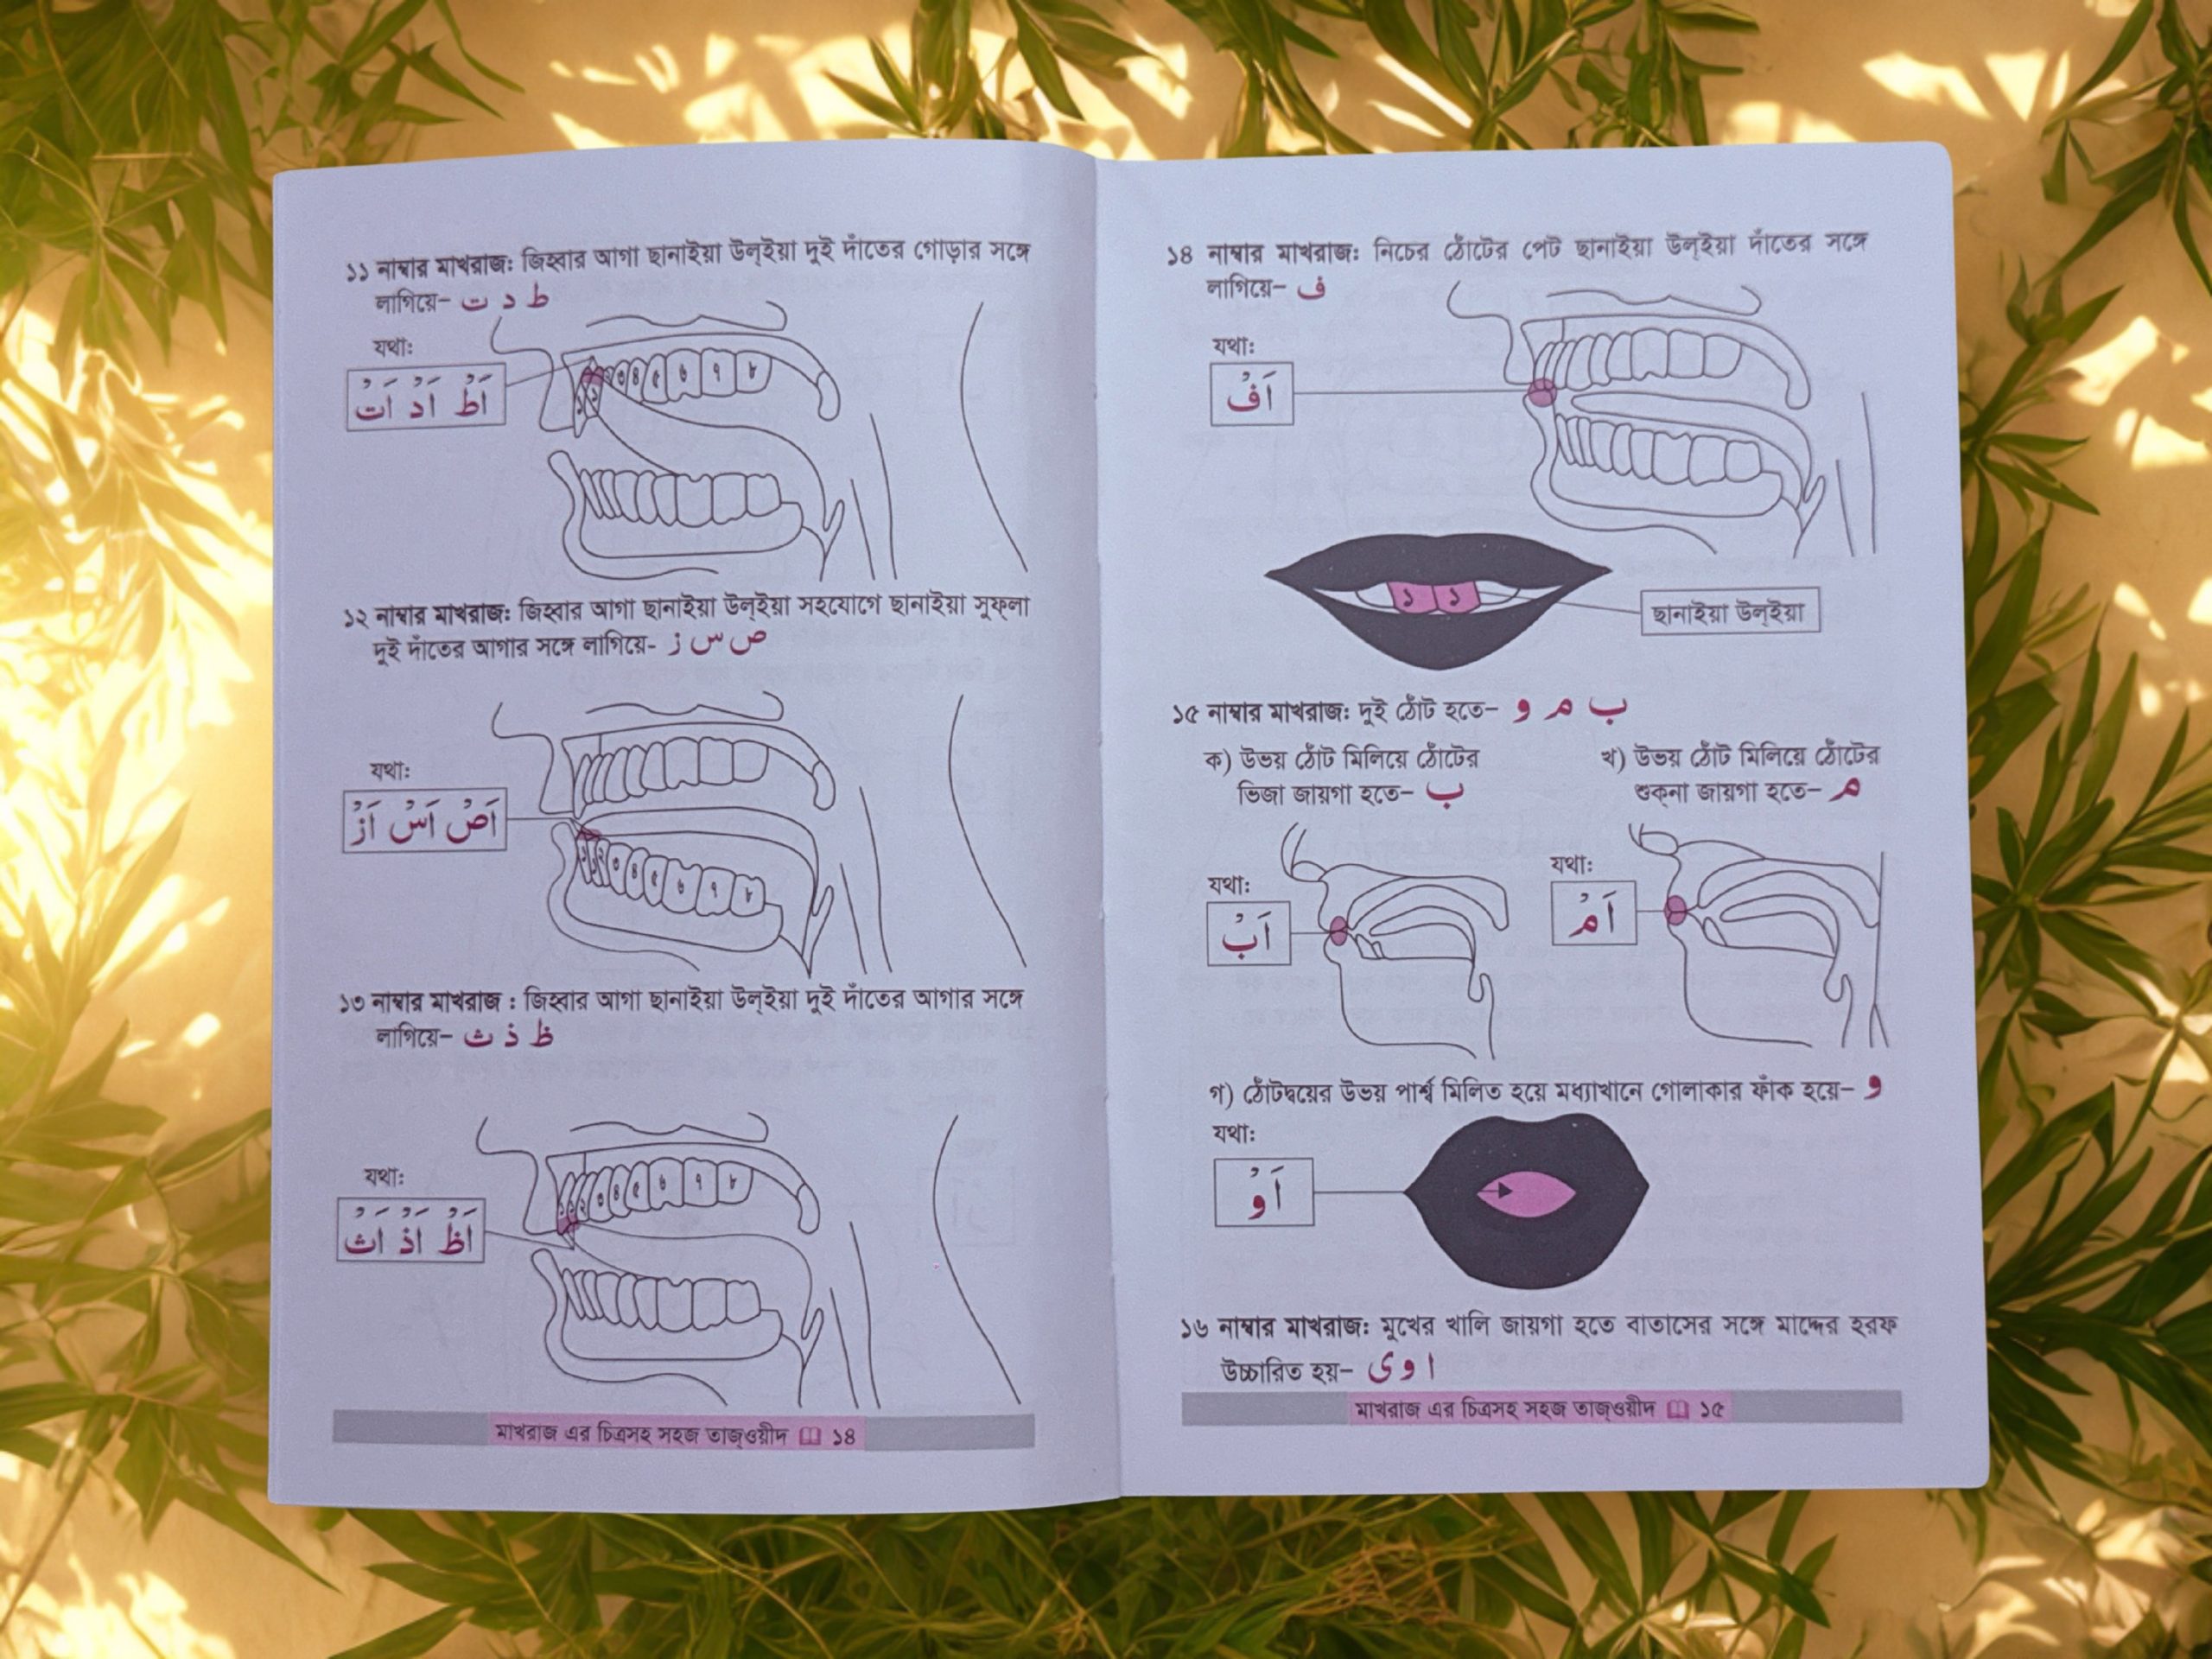 ১১ নাম্বার মাখরাজ: জিহ্বার আগা ছানাইয়া উল্ইয়া দুই দাঁতের গোড়ার সঙ্গে
লাগিয়ে- ط د ت
যথা:
اَطْ اَدْ اَتْ
৩ ৪ ৫ ৬ ৭ ৮
১২ নাম্বার মাখরাজ: জিহ্বার আগা ছানাইয়া উল্ইয়া সহযোগে ছানাইয়া সুফ্লা
দুই দাঁতের আগার সঙ্গে লাগিয়ে- ص س ز
যথা:
اَصْ اَسْ اَزْ
১ ২ ৩ ৪ ৫ ৬ ৭ ৮
১৩ নাম্বার মাখরাজ : জিহ্বার আগা ছানাইয়া উল্ইয়া দুই দাঁতের আগার সঙ্গে
লাগিয়ে- ظ ذ ث
যথা:
اَظْ اَذْ اَثْ
১ ২ ৩ ৪ ৫ ৬ ৭ ৮
মাখরাজ এর চিত্রসহ সহজ তাজ্ওয়ীদ ১৪
১৪ নাম্বার মাখরাজ: নিচের ঠোঁটের পেট ছানাইয়া উল্ইয়া দাঁতের সঙ্গে
লাগিয়ে- ف
যথা:
اَفْ
১ ১
ছানাইয়া উল্ইয়া
১৫ নাম্বার মাখরাজ: দুই ঠোঁট হতে- ب م و
ক) উভয় ঠোঁট মিলিয়ে ঠোঁটের
ভিজা জায়গা হতে- ب
যথা:
اَبْ
খ) উভয় ঠোঁট মিলিয়ে ঠোঁটের
শুক্না জায়গা হতে- م
যথা:
اَمْ
গ) ঠোঁটদ্বয়ের উভয় পার্শ্ব মিলিত হয়ে মধ্যাখানে গোলাকার ফাঁক হয়ে- و
যথা:
اَوْ
১৬ নাম্বার মাখরাজ: মুখের খালি জায়গা হতে বাতাসের সঙ্গে মাদ্দের হরফ
উচ্চারিত হয়- ا و ى
মাখরাজ এর চিত্রসহ সহজ তাজ্ওয়ীদ ১৫